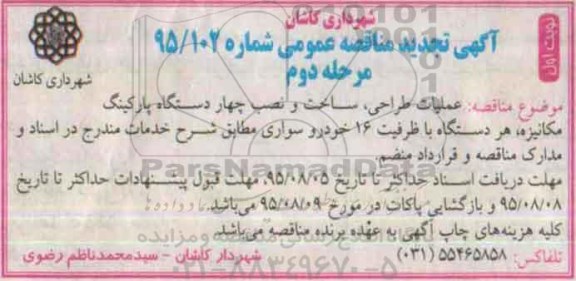 شهرداری کاشان
نوبت اول
آگهی تجدید مناقصه عمومی شماره ۹۵/۱۰۲
مرحله دوم
شهرداری کاشان
موضوع مناقصه: عملیات طراحی، ساخت و نصب چهار دستگاه پارکینگ
مکانیزه، هر دستگاه با ظرفیت ۱۶ خودرو سواری مطابق شرح خدمات مندرج در اسناد و
مدارک مناقصه و قرارداد منضم.
مهلت دریافت اسناد حداکثر تا تاریخ ۹۵/۰۸/۰۵، مهلت قبول پیشنهادات حداکثر تا تاریخ
۹۵/۰۸/۰۸ و بازگشایی پاکات در مورخ ۹۵/۰۸/۰۹ می‌باشد.
کلیه هزینه‌های چاپ آگهی به عهده برنده مناقصه می‌باشد.
تلفاکس: ۵۵۴۶۵۸۵۸ (۰۳۱)
شهردار کاشان - سیدمحمدناظم رضوی
ParsNamadData
۰۲۱-۸۸۳۴۹۶۷۰-۵